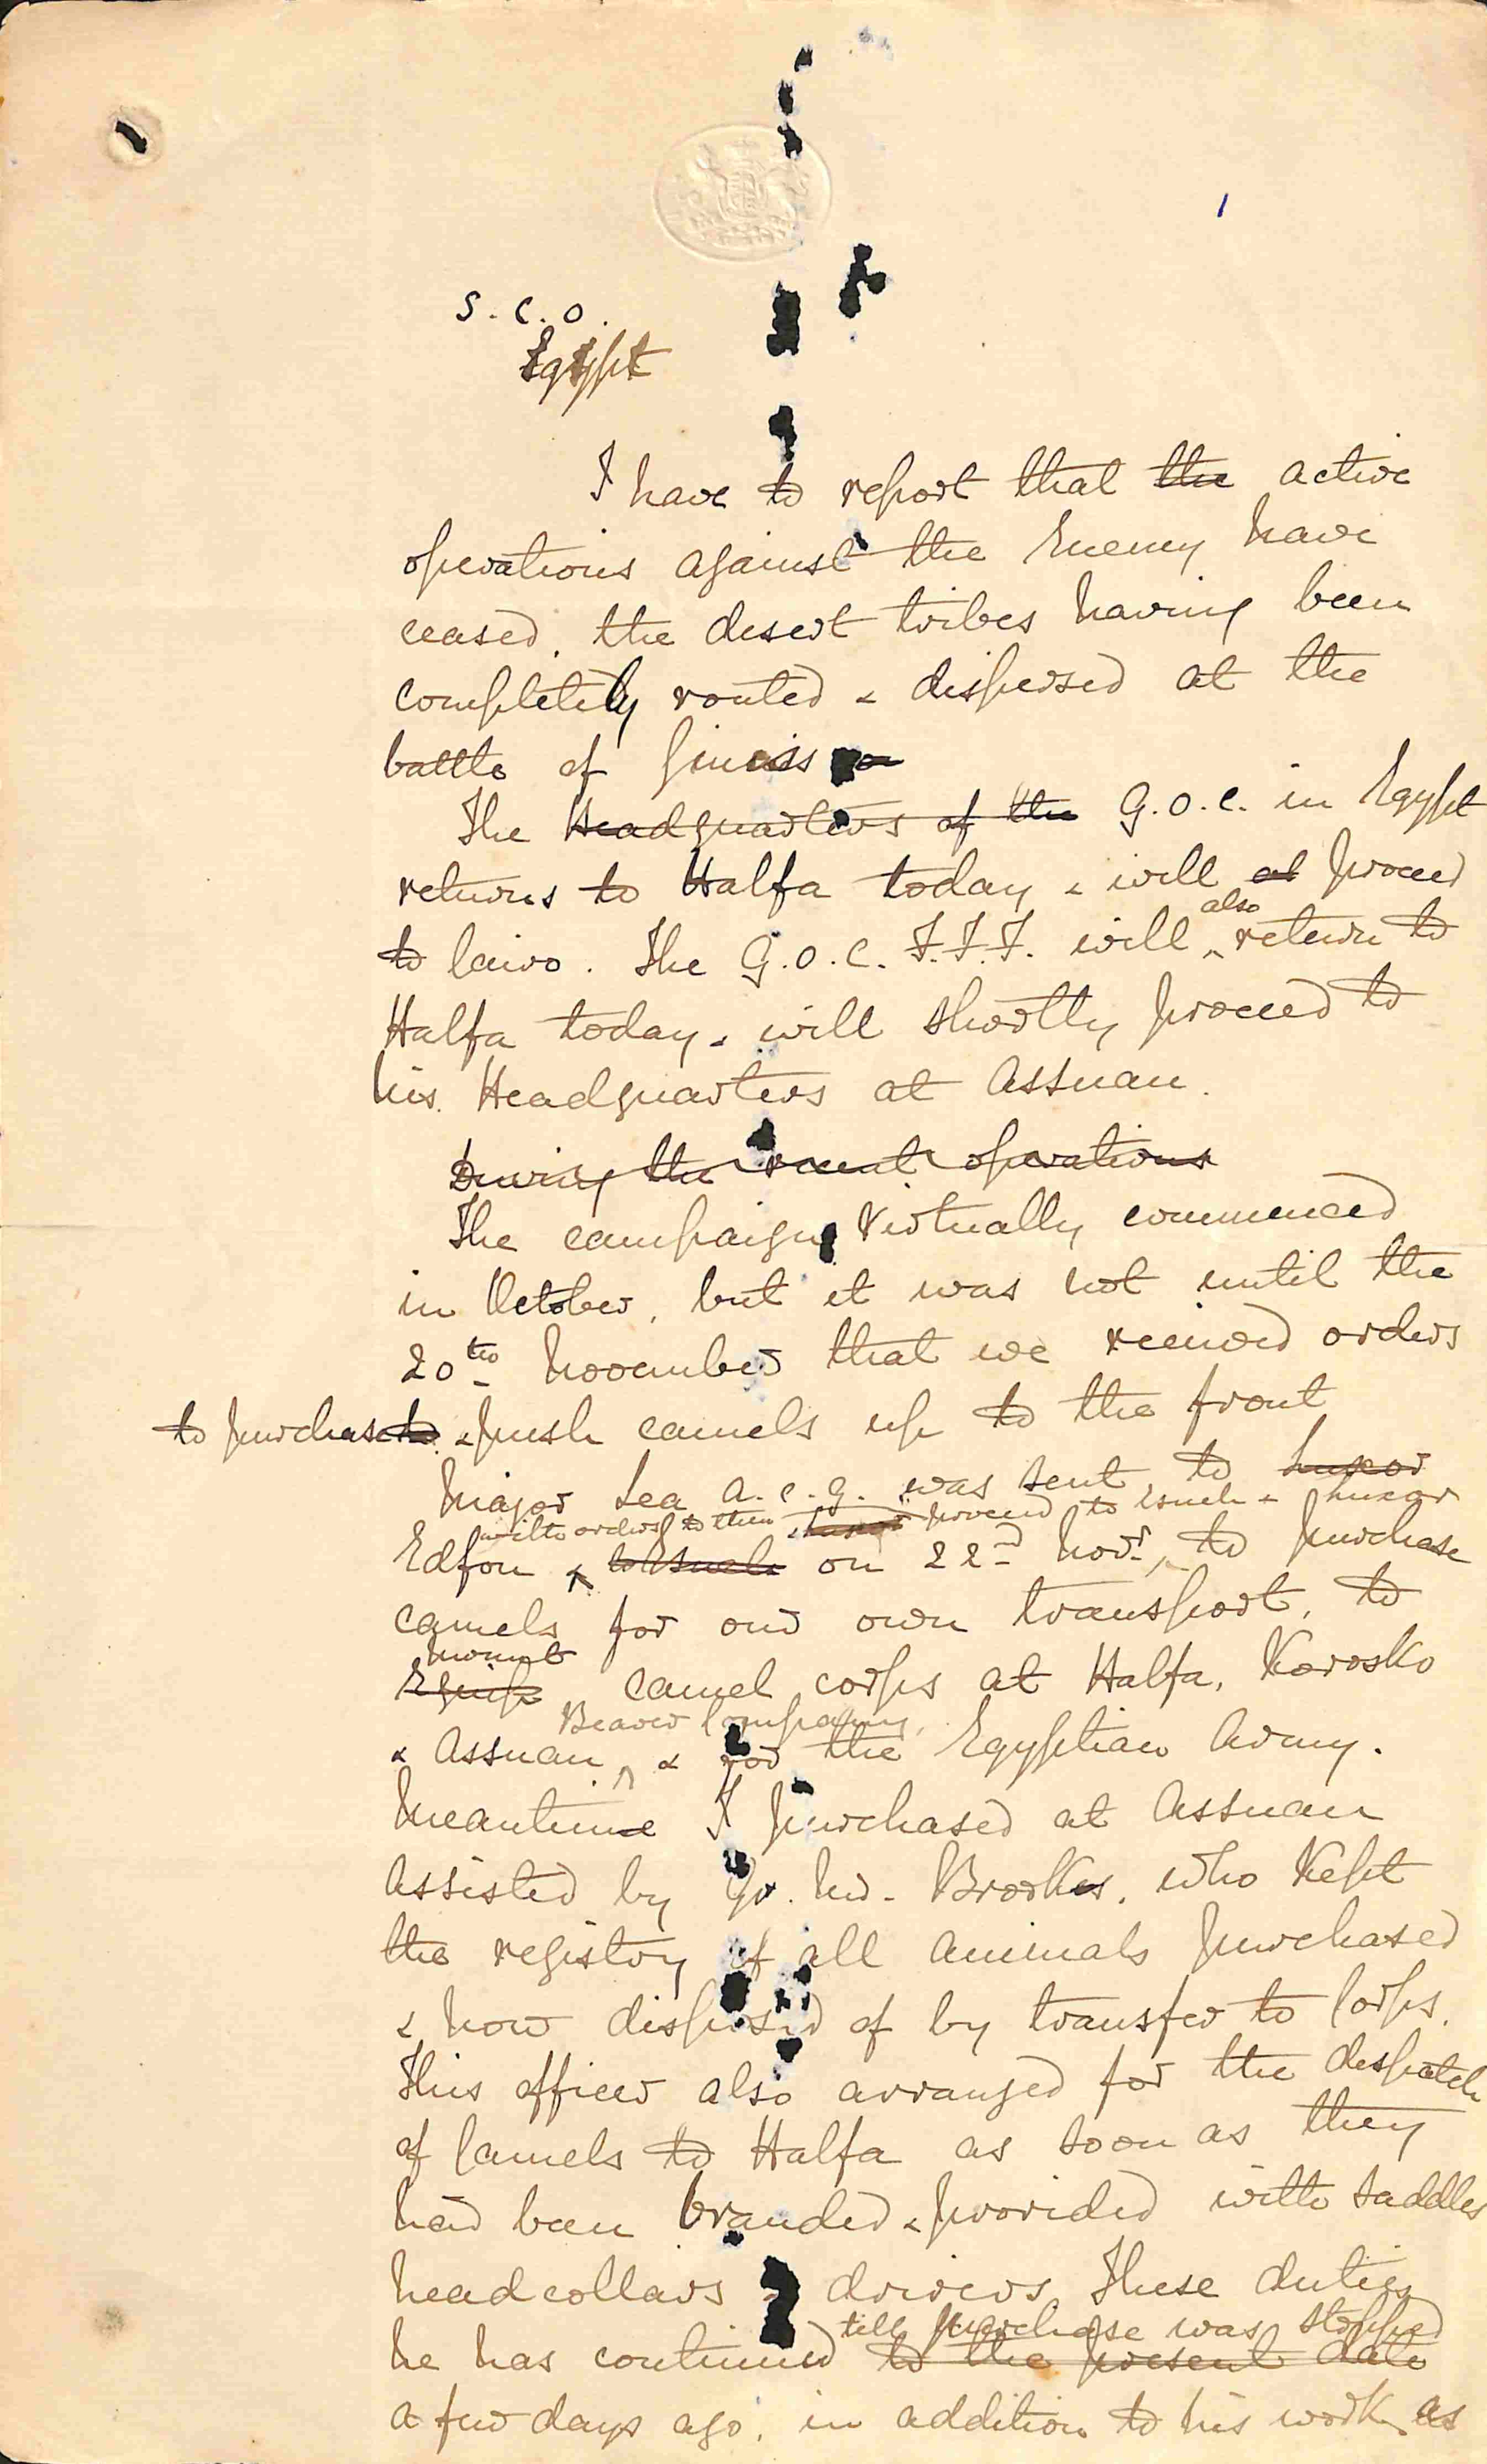 1
S. C. O.
Egypt
I have to report that the active
operations against the Enemy have
ceased, the desert tribes having been
completely routed & dispersed at the
battle of Giniss
The Headquarters of the G.O.C. in Egypt
returns to Halfa today & will al proceed
also
to Cairo. The G.O.C. F.F.F. will ^ return to
Halfa today & will shortly proceed to
his Headquarters at Assuan.
During the recent operations
The campaign virtually commenced
in October, but it was not until the
20th November that we received orders
to purchase to & push camels up to the front
Major Lea A.C.G. was sent to Luxor
with orders to then proceed to Esneh & Luxor
Edfou & to Esneh on 22nd Novr, to purchase
camels for our own transport, to
mount
Equip camel corps at Halfa, Korosko
Bearer Company,
& Assuan ^ & for the Egyptian Army.
Meantime I purchased at Assuan
assisted by Qr. Mr. Brookes, who kept
the registry of all animals purchased
& how disposed of by transfer to Corps.
This officer also arranged for the despatch
of Camels to Halfa as soon as they
had been branded & provided with saddles
headcollars & drivers. These duties
till purchase was stopped
he has continued to the present date
a few days ago, in addition to his work as